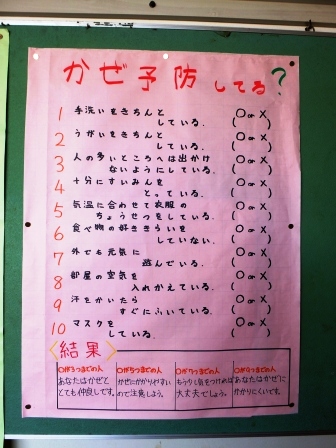 かぜ予防してる?
1 手洗いをきちんと
している. (○or×)
2 うがいをきちんと
している. (○or×)
3 人の多いところへは出かけ
ないようにしている. (○or×)
4 十分にすいみんを
とっている. (○or×)
5 気温に合わせて衣服の
ちょうせつをしている. (○or×)
6 食べ物の好ききらいを
していない. (○or×)
7 外でも元気に
遊んでいる. (○or×)
8 部屋の空気を
入れかえている. (○or×)
9 汗をかいたら
すぐにふいている. (○or×)
10 マスクを
している. (○or×)
〈結果〉
○が3つまでの人
あなたはかぜと
とても仲良しです.
○が5つまでの人
かぜにかかりやすい
ので注意しよう.
○が7つまでの人
もう少し気をつければ
大丈夫でしょう.
あなたはかぜに
かかりにくいです.